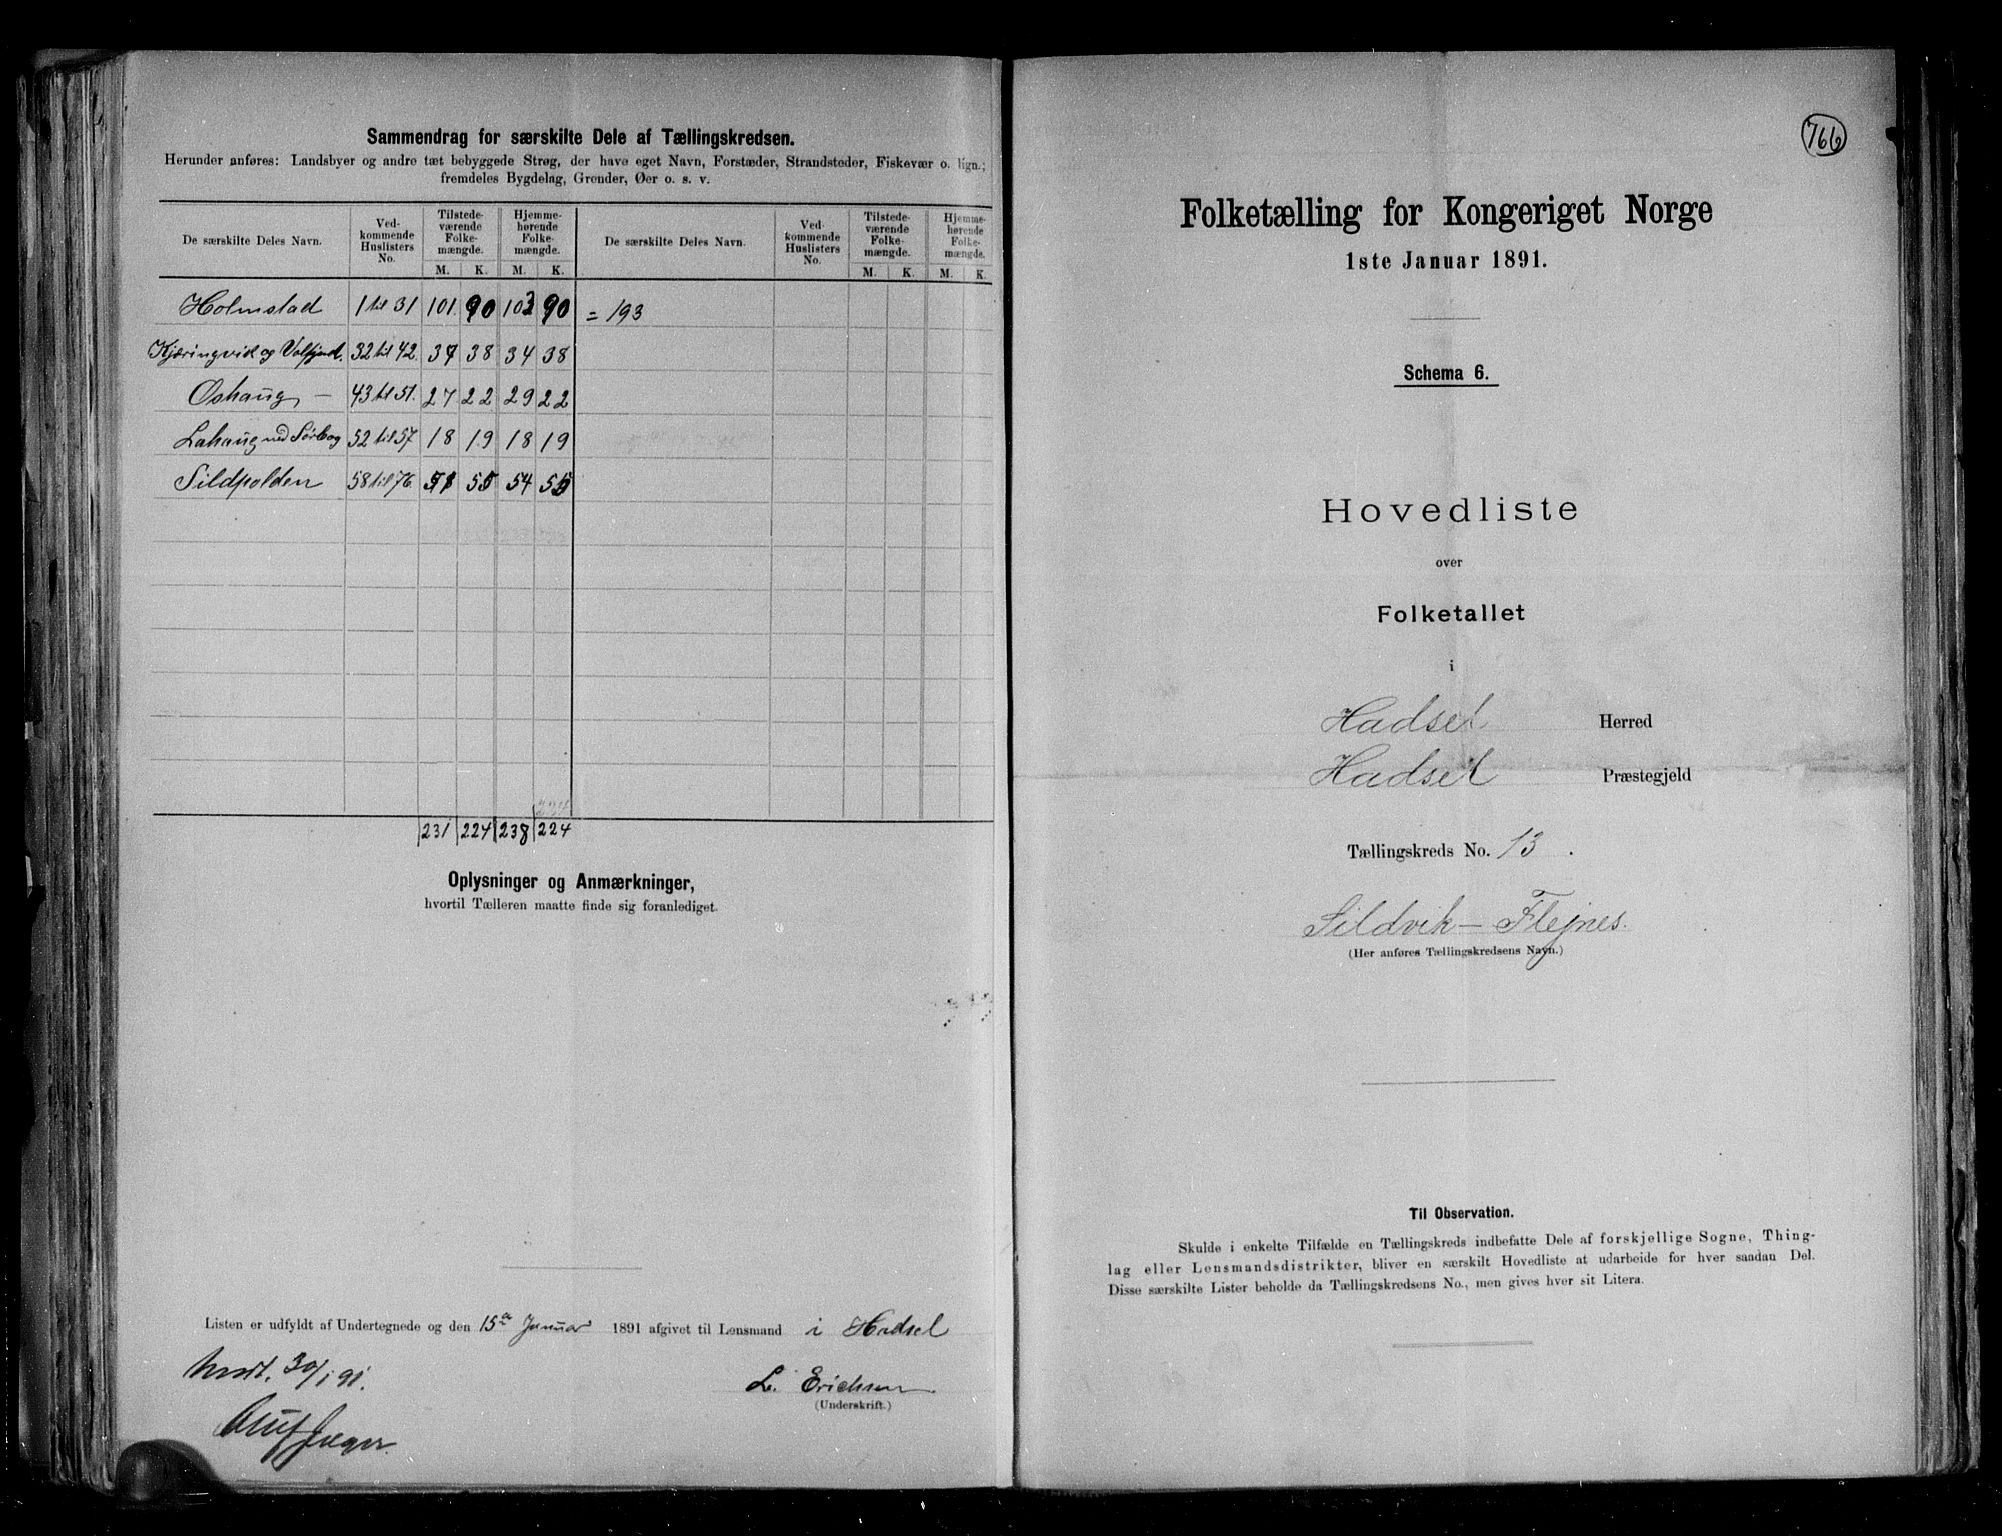 Sammendrag for særskilte Dele af Tællingskredsen.
Herunder anføres: Landsbyer og andre tæt bebyggede Strøg, der have eget Navn, Forstæder, Strandsteder, Fiskevær o. lign.;
fremdeles Bygdelag, Grender, Øer o. s. v.
De særskilte Deles Navn. Ved-kommende Huslisters No. Tilstede-værende Folke-mængde. Hjemme-hørende Folke-mængde. De særskilte Deles Navn. Ved-kommende Huslisters No. Tilstede-værende Folke-mængde. Hjemme-hørende Folke-mængde.
M. K. M. K. M. K. M. K.
Holmstad 1 til 31 101 90 103 90 = 193
Kjæringvik og 32 til 42. 34 38 34 38
Oshaug — 43 til 51. 27 22 29 22
Lahaug 52 til 57 18 19 18 19
Sildpolden 58 til 76 51 55 54 55
231 224 238 224
Oplysninger og Anmærkninger,
hvortil Tælleren maatte finde sig foranlediget.
Listen er udfyldt af Undertegnede og den 15de Januar 1891 afgivet til Lensmand i Hadsel
L. Erichsen
(Underskrift.)
Modt. 30/1 91.
Oluf Jæger
766
Folketælling for Kongeriget Norge
1ste Januar 1891.
Schema 6.
Hovedliste
over
Folketallet
i
Hadsel Herred
Hadsel Præstegjeld
Tællingskreds No. 13.
Sildvik — Flejnes.
(Her anføres Tællingskredsens Navn.)
Til Observation.
Skulde i enkelte Tilfælde en Tællingskreds indbefatte Dele af forskjellige Sogne, Thing-
lag eller Lensmandsdistrikter, bliver en særskilt Hovedliste at udarbeide for hver saadan Del.
Disse særskilte Lister beholde da Tællingskredsens No., men gives hver sit Litera.